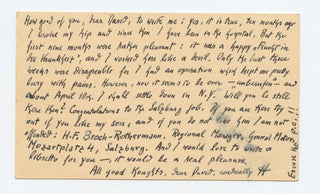 How good of you, dear David, to write me: yes, it is true, ten months ago
I broke my hip and since then I have been in the hospital. But the
first nine months were rather pleasant: it was a happy otium in
the "Krankheit", and I worked like a devil. Only the last three
weeks were disagreeable for I had an operation which kept me pretty
busy with pains. However, now it seems to be over — and
about April 10th I shall settle down in N.Y. Will you be still
there then? Congratulations to the Salzburg job. If you are there try
out of you like my son; and if you do not like him I am not
offended: H.F. Broch-Rothermann, Regional Manager, General Motors,
Mozartplatz 4, Salzburg. And I would love to write a
libretto for you — it would be a real pleasure.
All good thoughts, dear David, cordially H
Excuse the p.c.!!